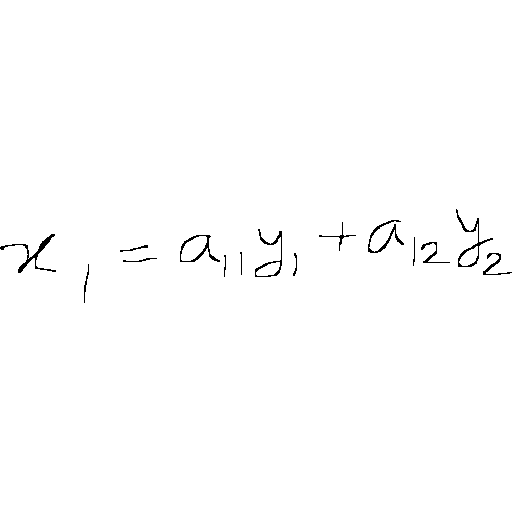 x₁ = a₁₁y₁ + a₁₂y₂